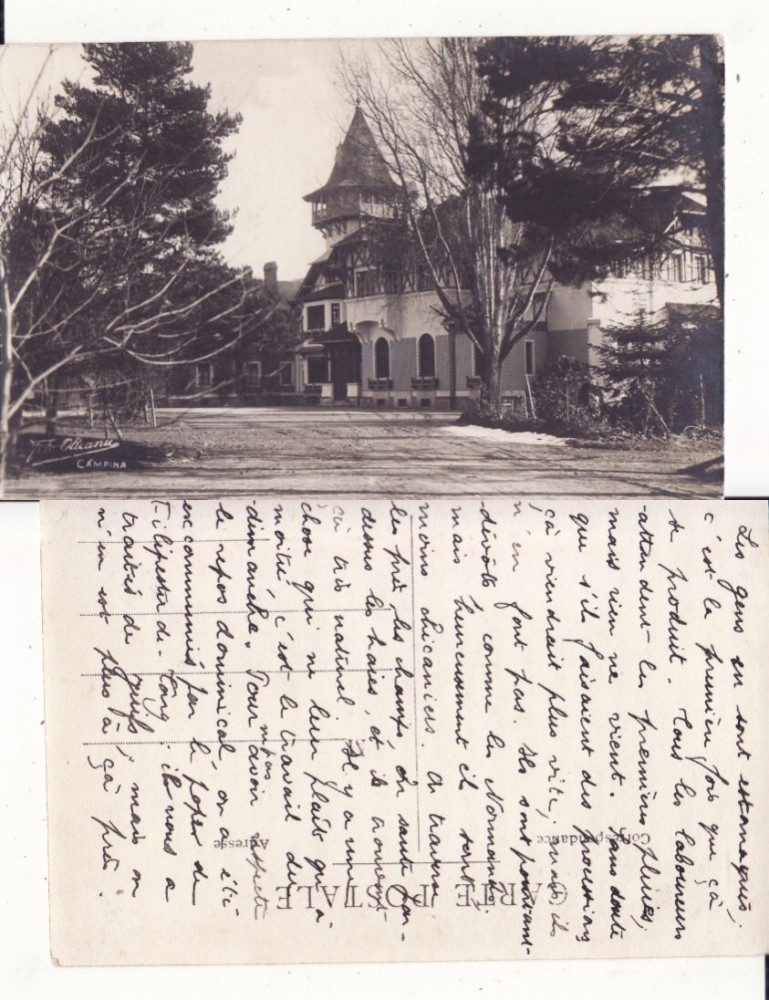 Olteanu
CÂMPINA
Les gens en sont estomaqués;
c'est la première fois que çà
se produit. Tous les laboureurs
attendent les premières pluies,
mais rien ne vient. Sans doute
que s'ils faisaient des processions
çà viendrait plus vite; mais ils
n'en font pas. Ils sont pourtant
dévots comme les Normands
mais heureusement ils sont
moins chicaniers. On traverse
les prés les champs, on saute par-
dessus les haies, et ils trouvent
çà très naturel. Il y a une
chose qui ne leur plaît qu'à
moitié c'est le travail du
dimanche. Pour avoir pas respecté
le repos dominical, on a été
excommuniés par le pope de
Filipestii-de-Targ; il nous a
traités de juifs; mais on
n'en est plus à çà près.
CARTE POSTALE
Correspondance
Adresse